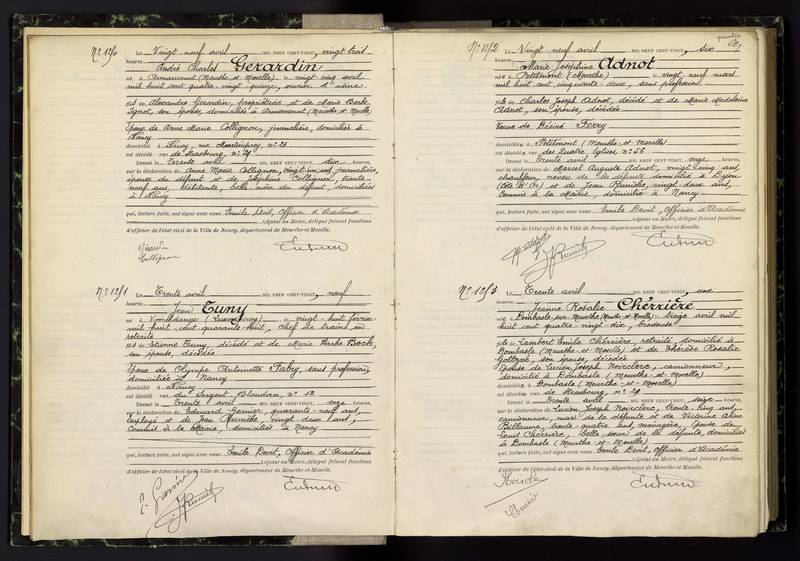 N° 1250 Le Vingt neuf avril MIL NEUF CENT-VINGT, vingt trois
heures
André Charles Gerardin
né à Armaucourt (Meurthe-et-Moselle) le vingt cinq avril
mil huit cent quatre vingt quinze, ouvrier d'usine
fils de Alexandre Gerardin, propriétaire et de Marie Barbe
son épouse, domiciliés à Armaucourt (Meurthe-et-Moselle)
Epoux de Anne Marie Collignon, journalière, domiciliée à
Nancy
domicilié à Nancy, rue n° 26
est décédé rue de Strasbourg, n° 29
Dressé le Trente avril dix heures,
sur la déclaration de Anne Marie Collignon, vingt-six ans, journalière,
épouse du défunt et de Joséphine Collignon, trente
neuf ans, belle mère du défunt, domiciliées
à Nancy
qui, lecture faite, ont signé avec nous Emile Devit, Officier d'Académie
Adjoint au Maire, délégué faisant fonctions
d'officier de l'état civil de la Ville de Nancy, département de Meurthe-et-Moselle.
Collignon
N° 1251 Le Trente avril MIL NEUF CENT-VINGT, neuf
heures
Jean Tuny
né à (Luxembourg) le vingt-huit février
mil huit cent quarante huit, Chef de trains en
retraite
fils de Etienne Tuny, décédé et de Marie Barbe Bock,
son épouse, décédée
Epoux de Olympe Antoinette Faby, sans profession,
domiciliée à Nancy
domicilié à Nancy
est décédé rue du Sergent Blandan, n° 12
Dressé le Trente avril onze heures,
sur la déclaration de Edouard quarante neuf ans,
employé et de Jean Runièle, vingt deux ans,
Commis à la Mairie, domiciliés à Nancy
qui, lecture faite, ont signé avec nous Emile Devit, Officier d'Académie
Adjoint au Maire, délégué faisant fonctions
d'officier de l'état civil de la Ville de Nancy, département de Meurthe-et-Moselle.
N° 1252 Le Vingt neuf avril MIL NEUF CENT-VINGT, six
heures
Marie Joséphine Adnot
née à Petitmont (Meurthe) le vingt neuf mars
mil huit cent cinquante deux, sans profession
fille de Charles Joseph Adnot, décédé et de Marie Madeleine
Adnot, son épouse, décédée
Veuve de Désiré Ferry
domiciliée à Petitmont (Meurthe-et-Moselle)
est décédée rue des Quatre Eglises n° 56
Dressé le Trente avril onze heures,
sur la déclaration de Marcel Auguste Adnot, vingt cinq ans,
chauffeur, neveu de la défunte domicilié à Dijon
(Côte d'Or) et de Jean Runièle, vingt-deux ans,
Commis à la Mairie, domicilié à Nancy
qui, lecture faite, ont signé avec nous Emile Devit, Officier d'Académie
Adjoint au Maire, délégué faisant fonctions
d'officier de l'état civil de la Ville de Nancy, département de Meurthe-et-Moselle.
N° 1253 Le Trente avril MIL NEUF CENT-VINGT, une
heures
Jeanne Rosalie Chérrière
née à Dombasle-sur-Meurthe (Meurthe-et-Moselle) le treize avril mil
huit cent quatre vingt-dix, brodeuse
fille de Lambert Emile Chérrière, retraité, domicilié à
Dombasle (Meurthe-et-Moselle) et de Thérèse Rosalie
son épouse, décédée
Epouse de Lucien Joseph Noirclerc, camionneur,
domicilié à Dombasle (Meurthe-et-Moselle)
domiciliée à Dombasle (Meurthe-et-Moselle)
est décédée rue de Strasbourg, n° 29
Dressé le Trente avril seize heures,
sur la déclaration de Lucien Joseph Noirclerc, trente cinq ans,
camionneur, mari de la défunte et de Victorine Aline
trente quatre ans, ménagère, épouse de
Louis Chérrière, belle soeur de la défunte, domiciliés
à Dombasle (Meurthe-et-Moselle)
qui, lecture faite, ont signé avec nous Emile Devit, Officier d'Académie
Adjoint au Maire, délégué faisant fonctions
d'officier de l'état civil de la Ville de Nancy, département de Meurthe-et-Moselle.